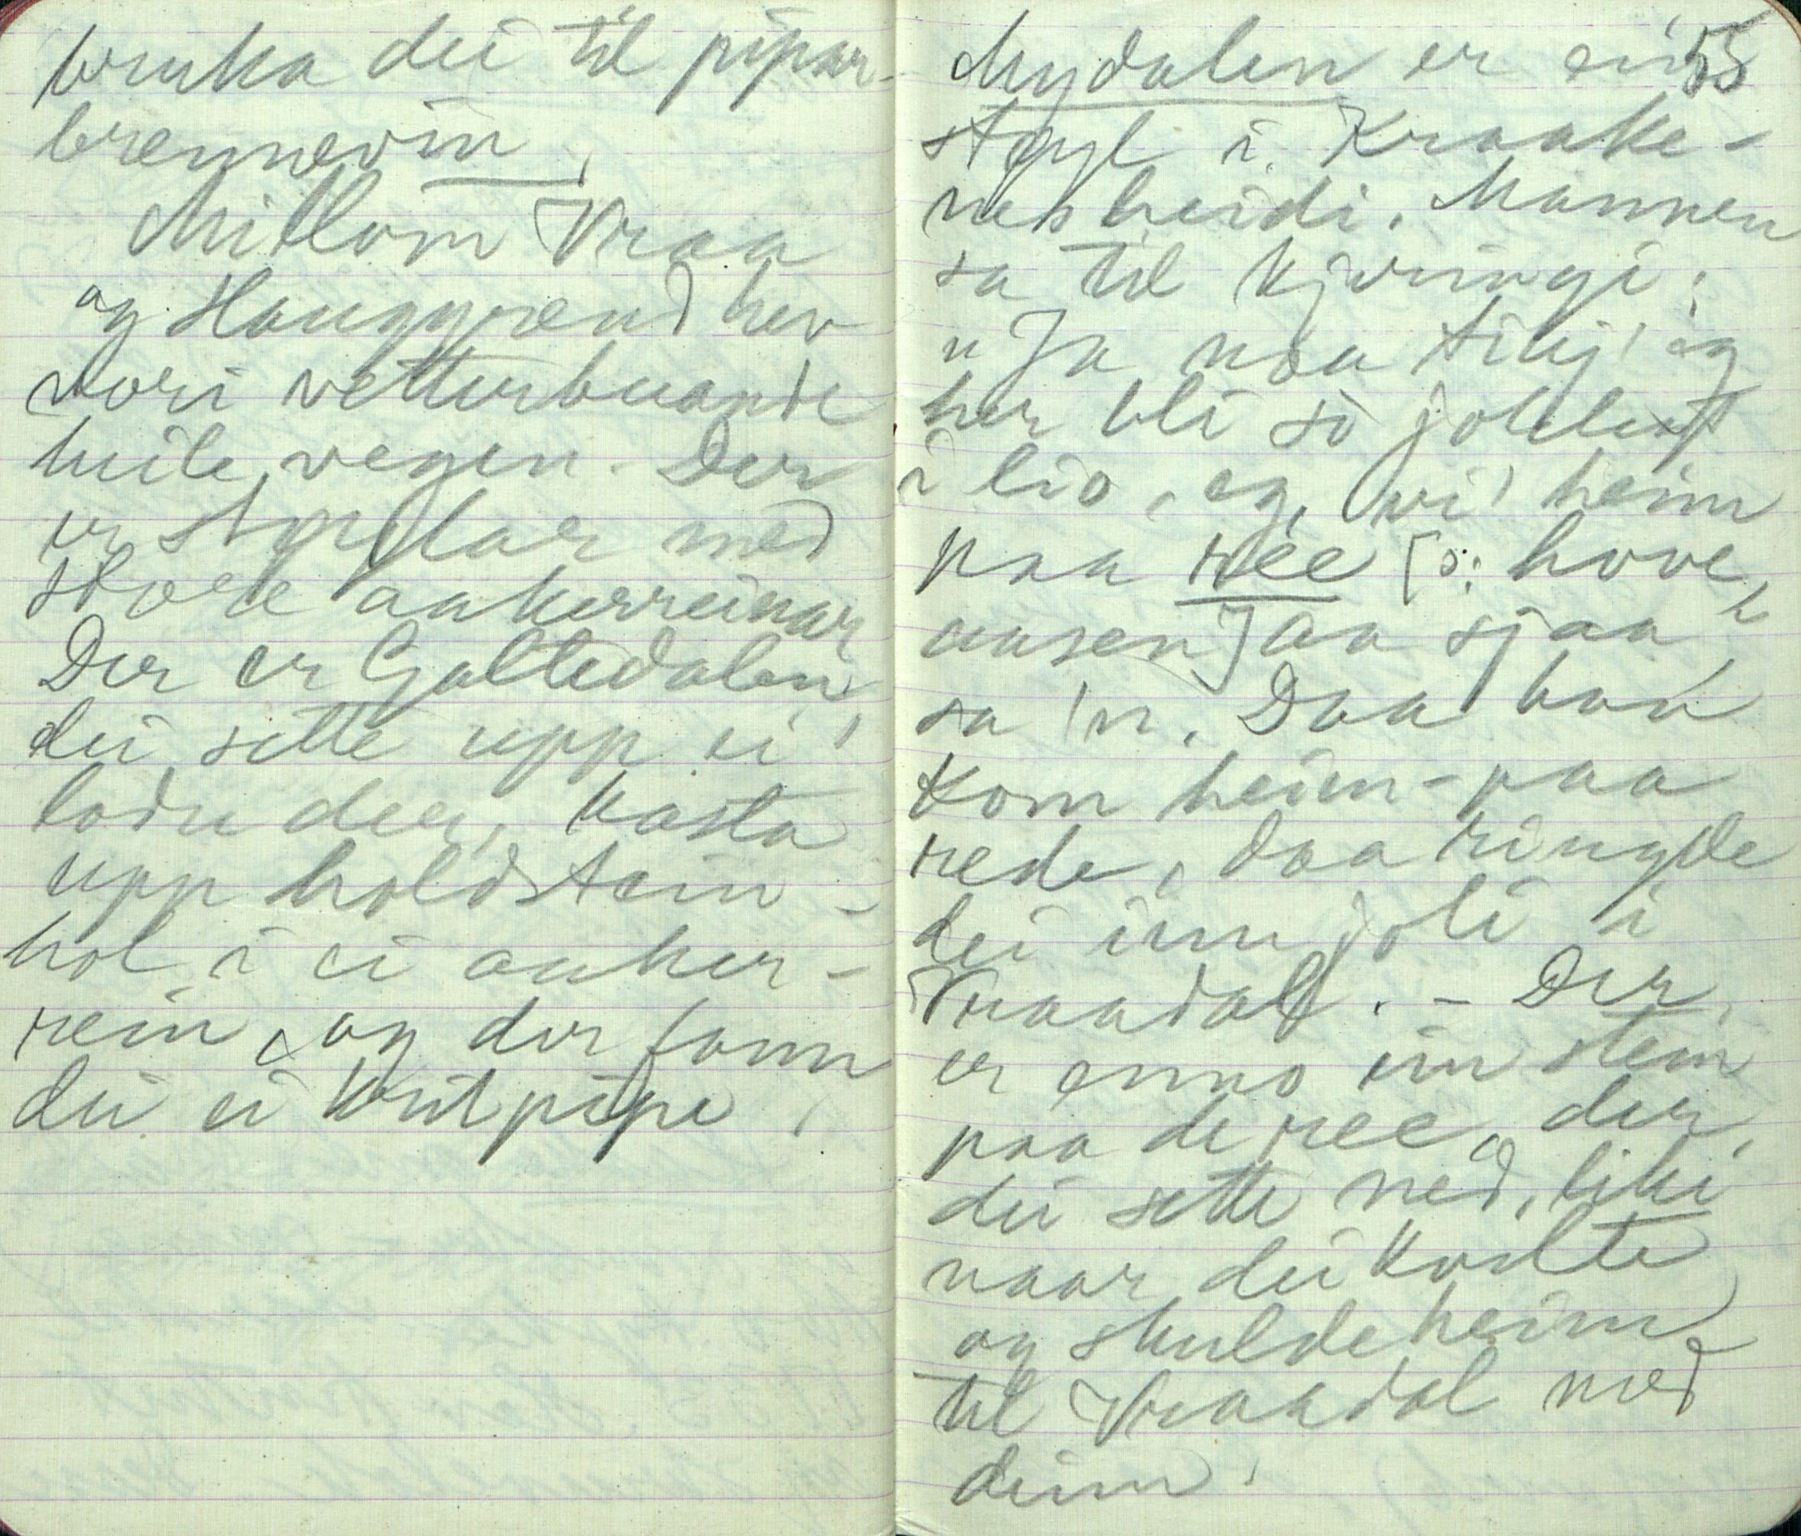 bruka dei til pipar-
brennevin.
Millom Vraa
og Haugyrend hev
vori vetterbuande
heile vegen. Der
er stydlar med
store aakerreinar
Der er Galtedalen,
dei sette upp ei
lodu der, kasta
upp holdstein-
hol i ei aaker-
rein, og der fann
dei ei kritpipe.
55
Mydalen er ein
støyl i Kraake-
nesheidi. Mannen
sa til kjæringi:
"Ja naa
her bli so
i lio, eg vi' heim
paa ree [ɔ: hove,
aasen] aa sjaa"
sa 'n. Daa han
kom heim-paa
rede, daa ringde
dei inn joli i
Vraadal. - Der
er enno ein stein
paa de ree, der
dei sette ned, liki
naar dei kvilte
og skulde heim
til Vraadal med
deim.